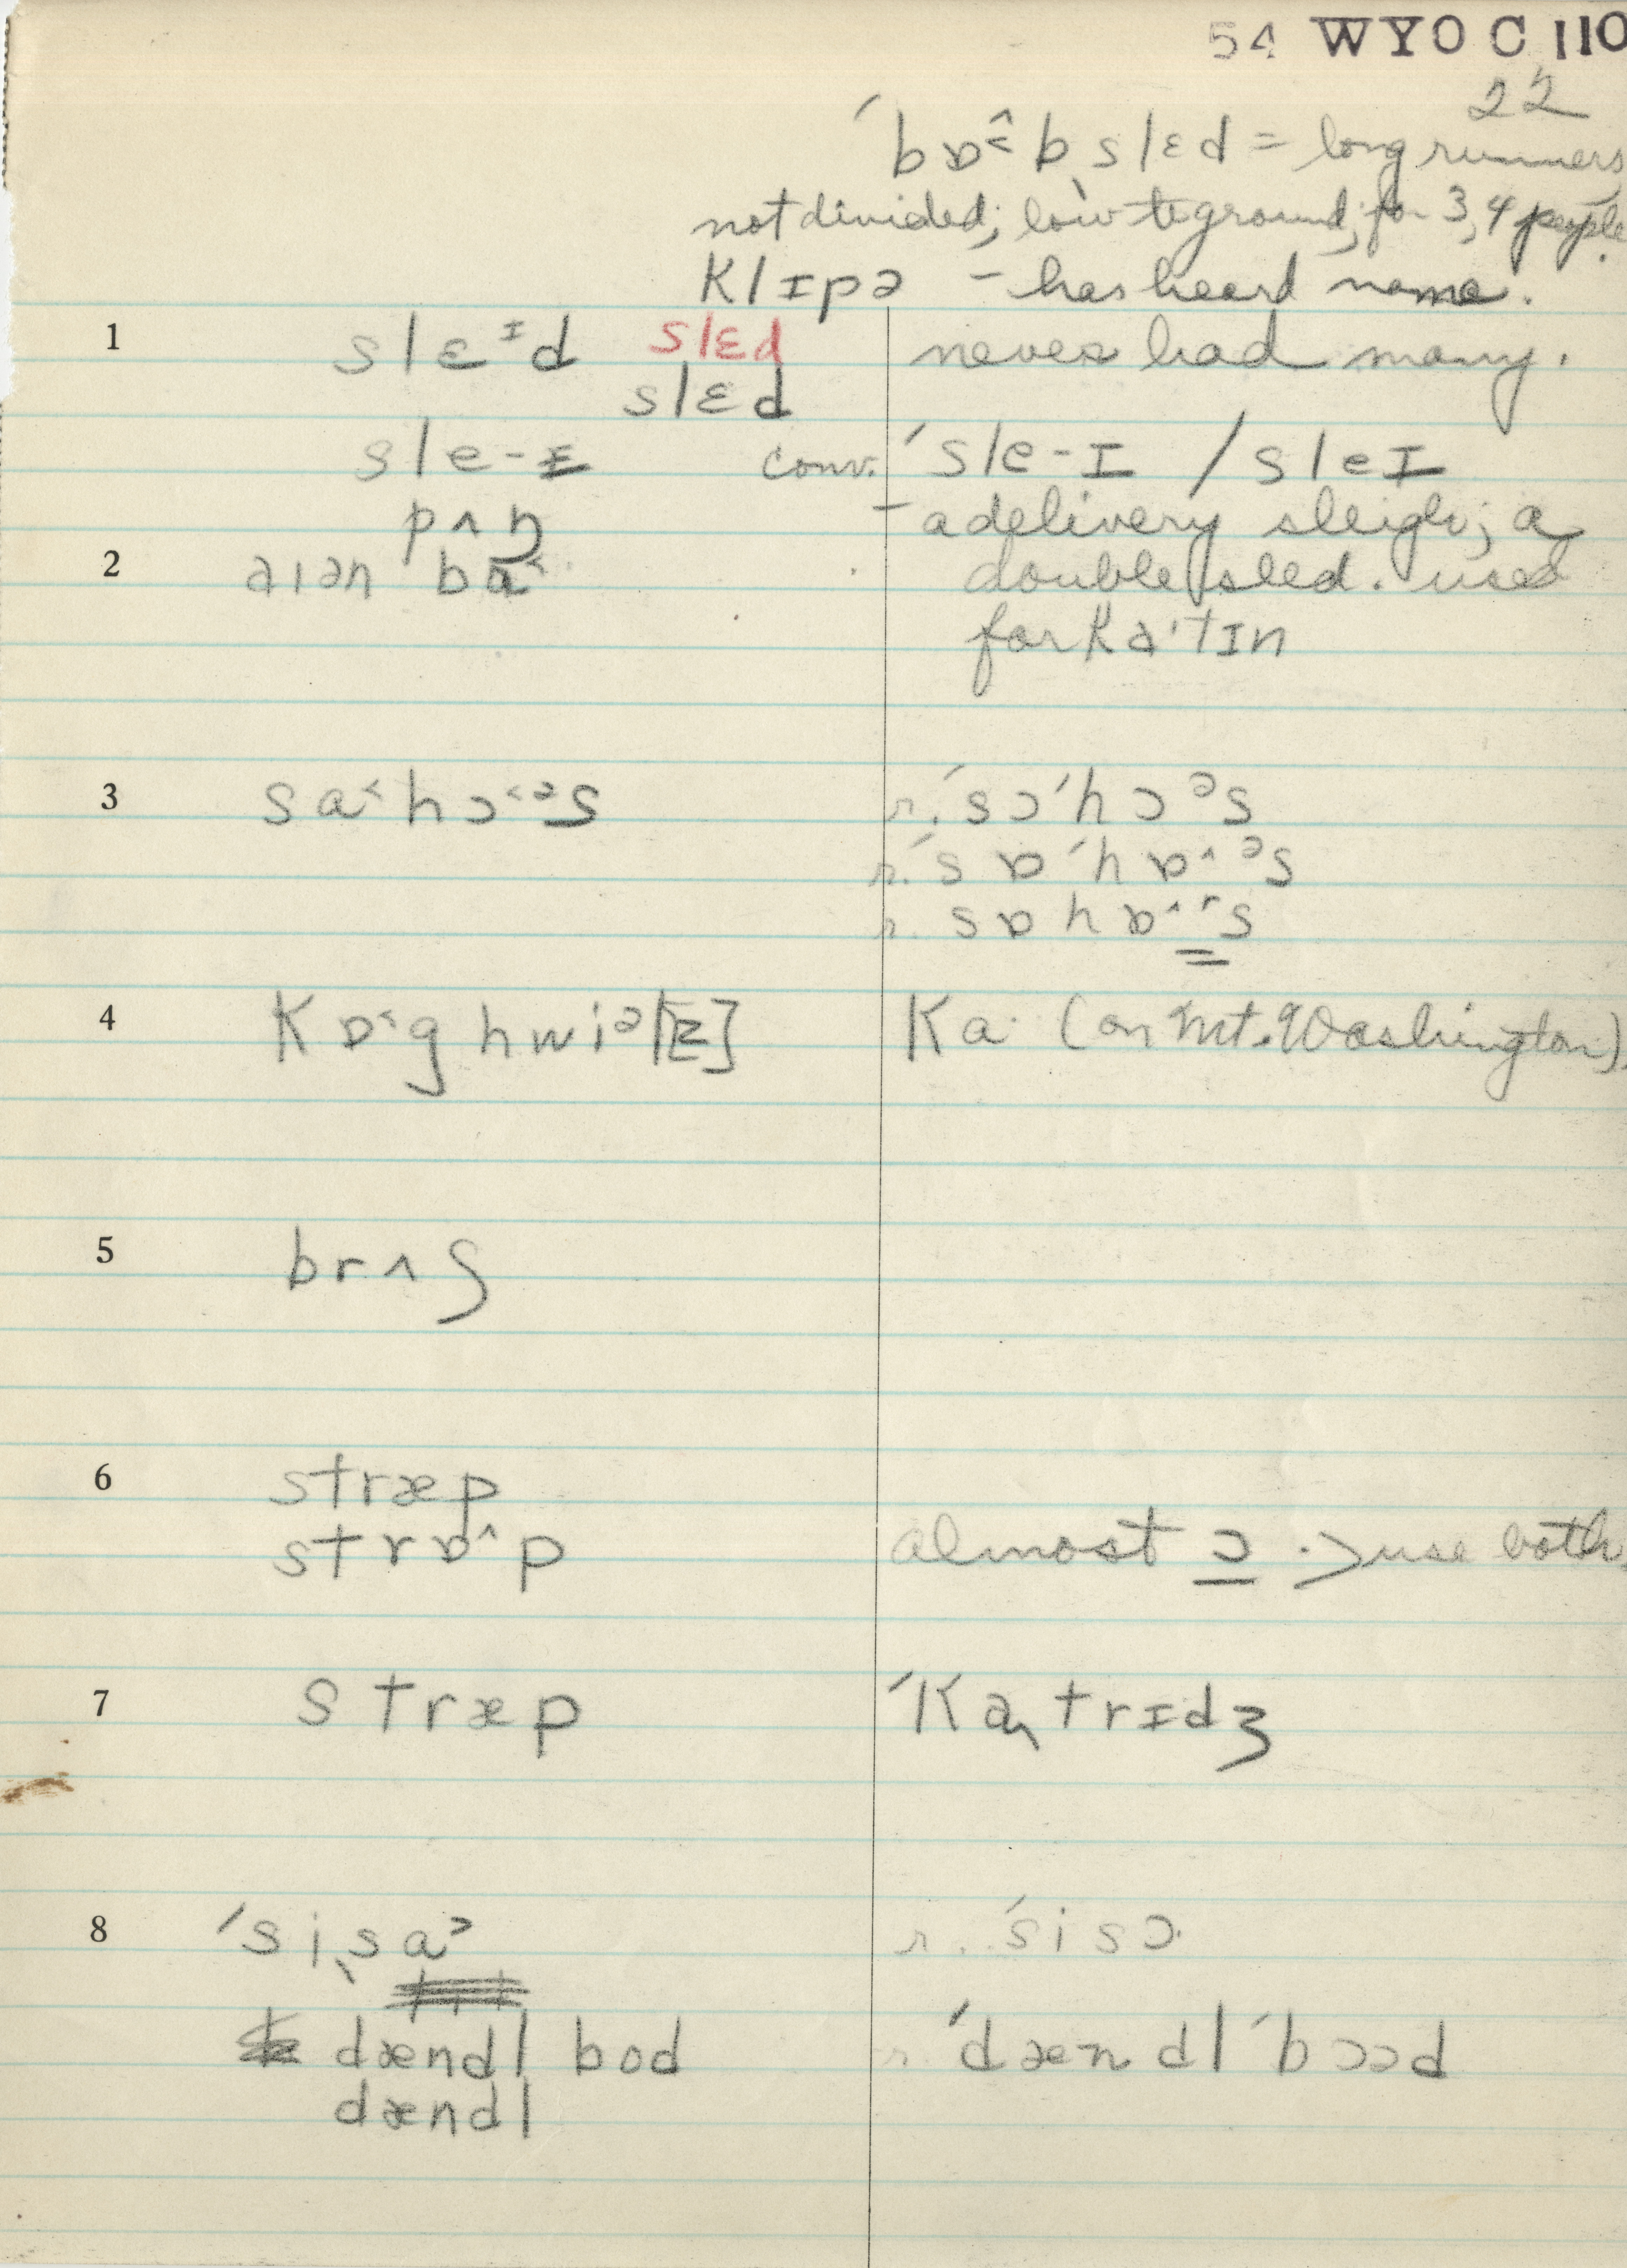 54 WYOC 110
22
ˊbɒ˂̂b ˎslɛd = long runners,
not divided; low to ground; for 3, 4 people.
klɪpə – has heard name.
1 slɛᶦd slɛd never had many.
slɛd
sle-ɪ conv. ˊsle-ɪ / sleɪ
pʌŋ – a delivery sleigh; a
2 aɪən ba˂ double sled. used
for ka'tɪn
3 sa˂hɔ˂ᵊs r. ˊsɔˊhɔᵊs
r. ˊsɒˊhɒ^ᵊs
r. sɒhɒ^ʳs
4 kɒ˂g hwiᵊl[z] ka· (on Mt. Washington).
5 brʌʃ
6 stræp
strɒ^p almost ɔ. > use both.
7 stræp ˊkaˎtrɪdʒ
8 ˊsiˎsa˃ r. ˊsisɔ·
dændl bod r. ˊdændl ˊbɔəd
dændl